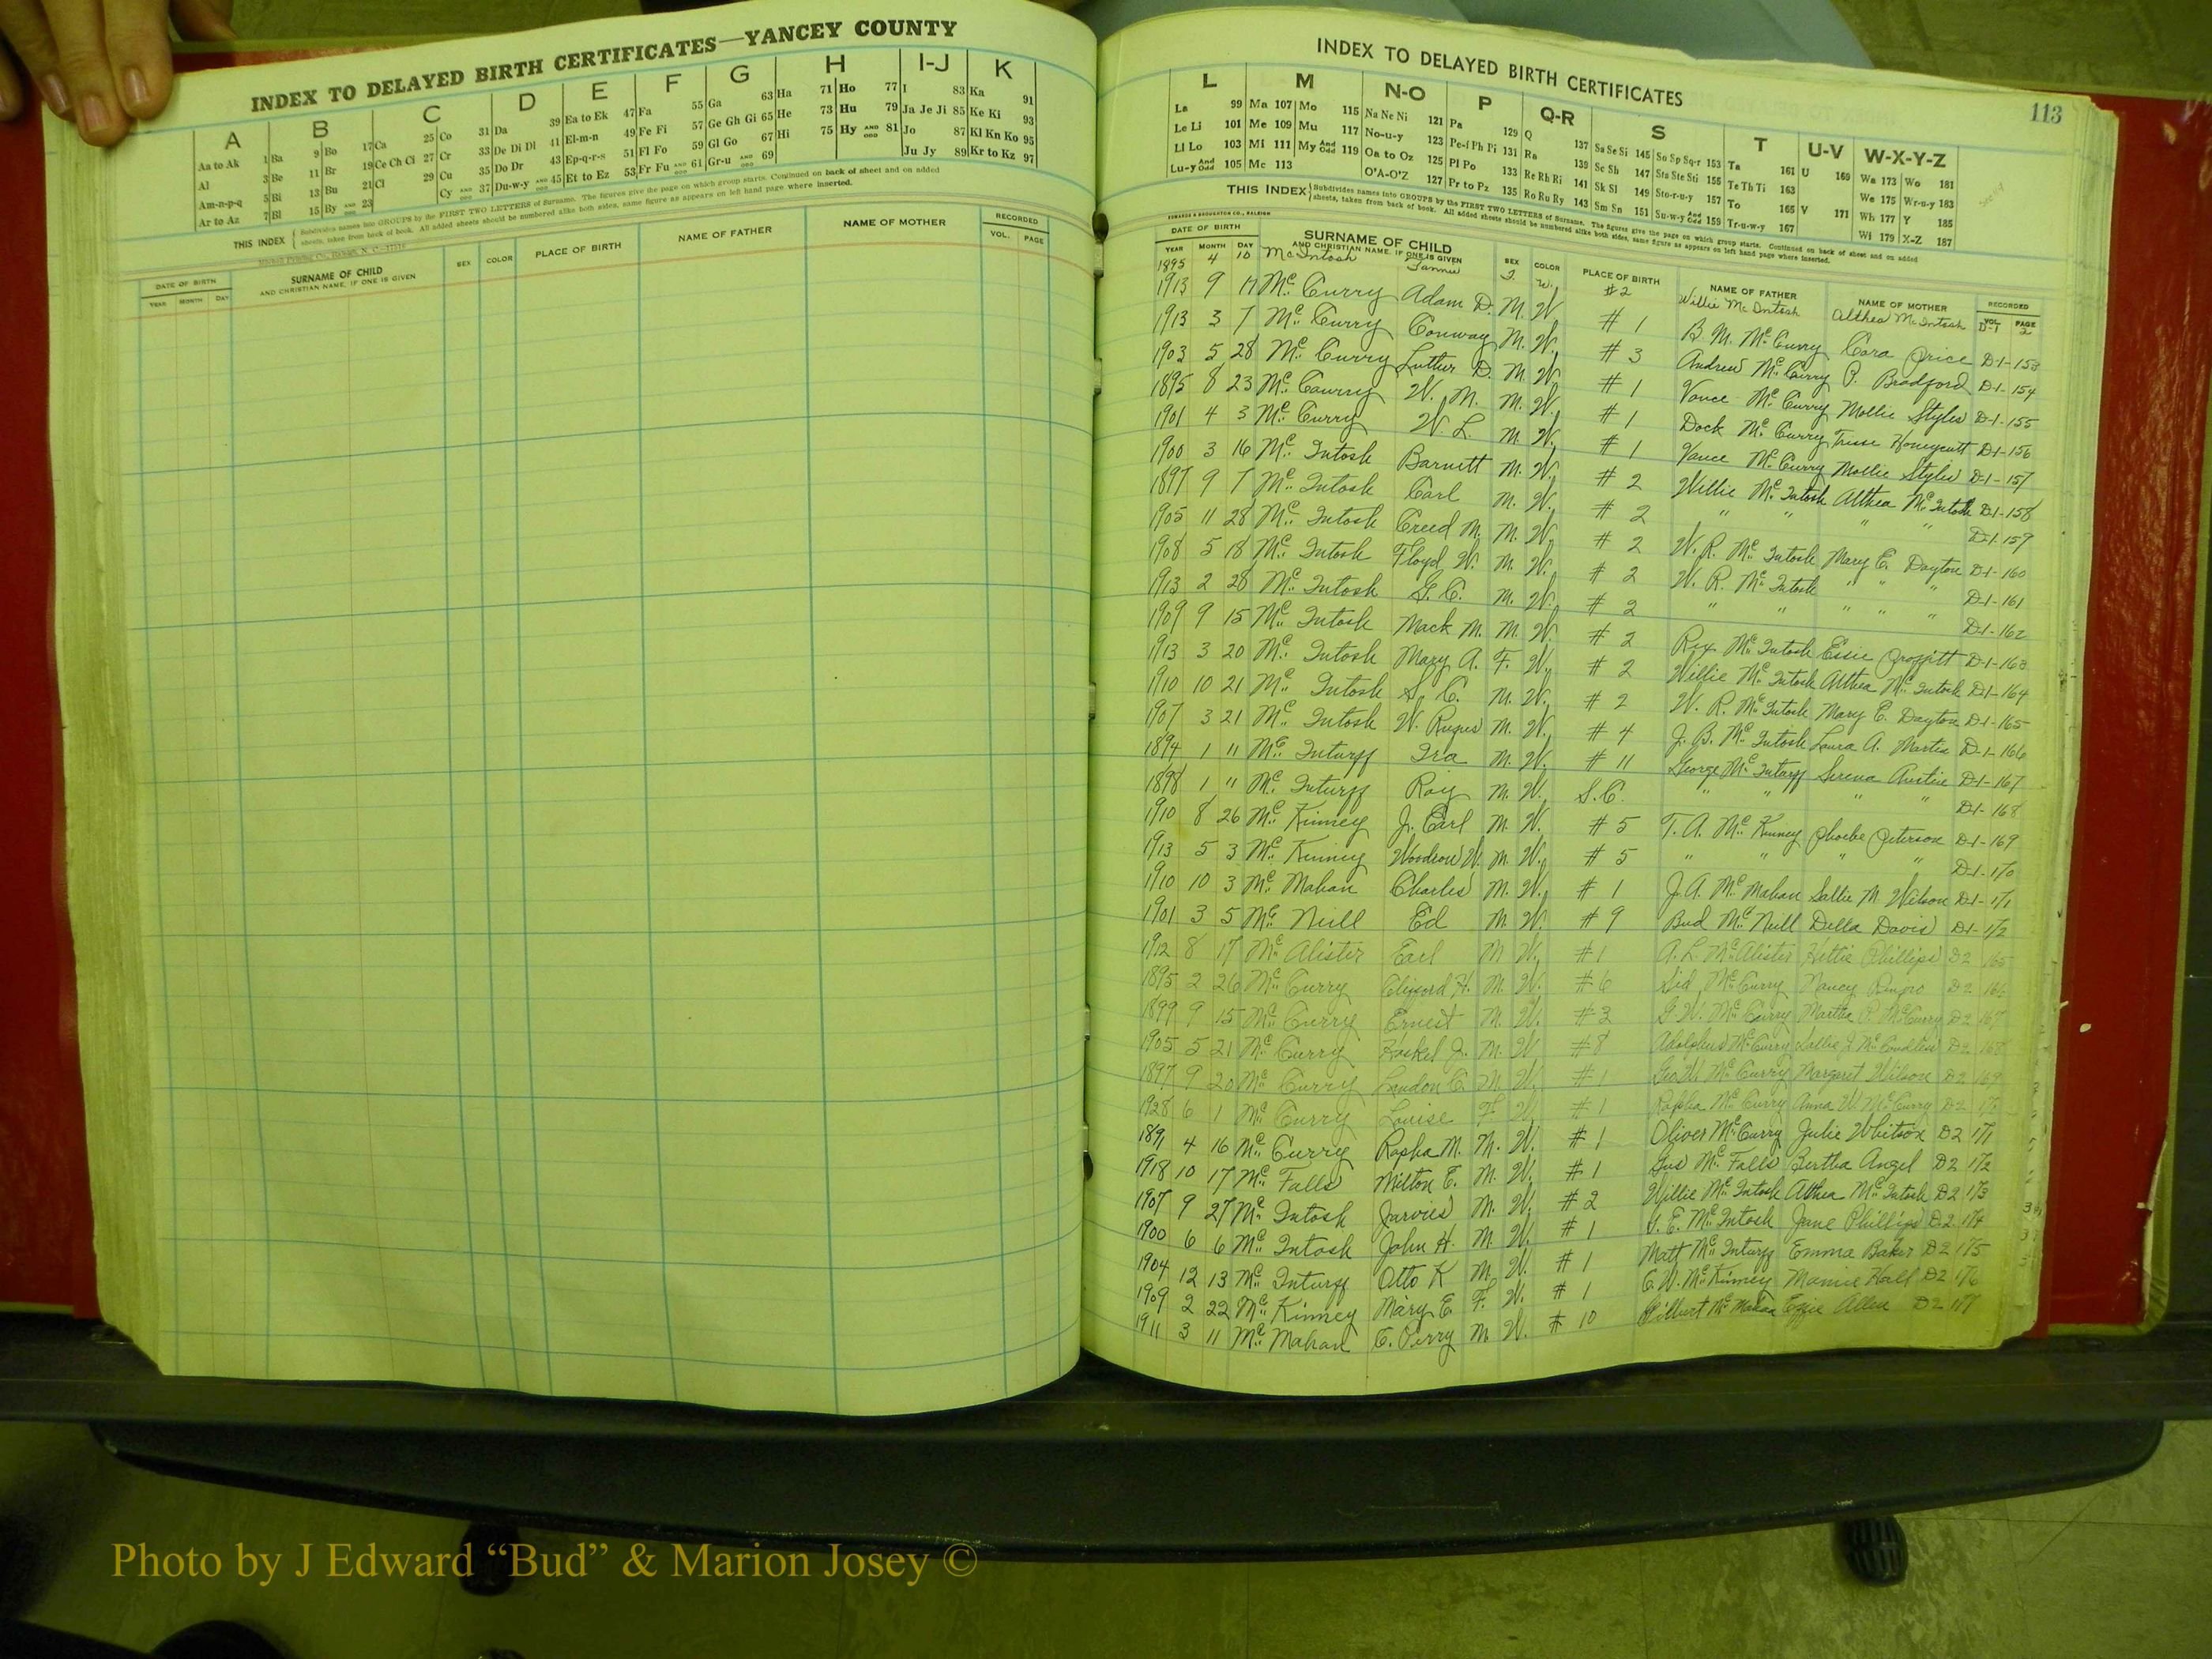 INDEX TO DELAYED BIRTH CERTIFICATES—YANCEY COUNTY
A B C D E F G H I-J K
Aa to Ak 1 Ba 9 Bo 17 Ca 25 Co 31 Da 39 Ea to Ek 47 Fa 55 Ga 63 Ha 71 Ho 77 I 83 Ka 91
Al 3 Be 11 Br 19 Ce Ch Ci 27 Cr 33 De Di Dl 41 El-m-n 49 Fe Fi 57 Ge Gh Gi 65 He 73 Hu 79 Ja Je Ji 85 Ke Ki 93
Am-n-p-q 5 Bi 13 Bu 21 Cl 29 Cu 35 Do Dr 43 Ep-q-r-s 51 Fl Fo 59 Gl Go 67 Hi 75 Hy AND ODD 81 Jo 87 Kl Kn Ko 95
Ar to Az 7 Bl 15 By AND ODD 23 Cy AND ODD 37 Du-w-y AND ODD 45 Et to Ez 53 Fr Fu AND ODD 61 Gr-u AND ODD 69 Ju Jy 89 Kr to Kz 97
THIS INDEX { Subdivides names into GROUPS by the FIRST TWO LETTERS of Surname. The figures give the page on which group starts. Continued on back of sheet and on added
sheets, taken from back of book. All added sheets should be numbered alike both sides, same figure as appears on left hand page where inserted.
DATE OF BIRTH SURNAME OF CHILD SEX COLOR PLACE OF BIRTH NAME OF FATHER NAME OF MOTHER RECORDED
YEAR MONTH DAY AND CHRISTIAN NAME, IF ONE IS GIVEN VOL. PAGE
INDEX TO DELAYED BIRTH CERTIFICATES
113
L M N-O P Q-R S T U-V W-X-Y-Z
La 99 Ma 107 Mo 115 Na Ne Ni 121 Pa 129 Q 137 Sa Se Si 145 So Sp Sq-r 153 Ta 161 U 169 Wa 173 Wo 181
Le Li 101 Me 109 Mu 117 No-u-y 123 Pe-f Ph Pi 131 Ra 139 Sc Sh 147 Sta Ste Sti 155 Te Th Ti 163 We 175 Wr-u-y 183
Ll Lo 103 Mi 111 My And Odd 119 Oa to Oz 125 Pl Po 133 Re Rh Ri 141 Sk Sl 149 Sto-r-u-y 157 To 165 V 171 Wh 177 Y 185
Lu-y And Odd 105 Mc 113 O'A-O'Z 127 Pr to Pz 135 Ro Ru Ry 143 Sm Sn 151 Su-w-y And Odd 159 Tr-u-w-y 167 Wi 179 X-Z 187
THIS INDEX { Subdivides names into GROUPS by the FIRST TWO LETTERS of Surname. The figures give the page on which group starts. Continued on back of sheet and on added
sheets, taken from back of book. All added sheets should be numbered alike both sides, same figure as appears on left hand page where inserted.
EDWARDS & BROUGHTON CO., RALEIGH
DATE OF BIRTH SURNAME OF CHILD SEX COLOR PLACE OF BIRTH NAME OF FATHER NAME OF MOTHER RECORDED
YEAR MONTH DAY AND CHRISTIAN NAME, IF ONE IS GIVEN VOL. PAGE
1895 4 10 McIntosh W. #2 Willie McIntosh Althea McIntosh D-1 2
1913 9 17 McCurry Adam D. M. W. #1 B. M. McCurry Cora Price D-1-153
1913 3 7 McCurry Conway M. W. #3 Andrew McCurry P. Bradford D-1-154
1903 5 28 McCurry Luther D. M. W. #1 Vance McCurry Mollie Styles D-1-155
1895 8 23 McCourry W. M. M. W. #1 Dock McCurry Honeycutt D-1-156
1901 4 3 McCurry W. L. M. W. #1 Vance McCurry Mollie Styles D-1-157
1900 3 16 McIntosh Barnett M. W. #2 Willie McIntosh Althea McIntosh D-1-158
1897 9 7 McIntosh Carl M. W. #2 " " " " D-1-159
1905 11 28 McIntosh Creed M. M. W. #2 W. R. McIntosh Mary E. Dayton D-1-160
1908 5 18 McIntosh Floyd W. M. W. #2 W. R. McIntosh " " " D-1-161
1913 2 28 McIntosh G. C. M. W. #2 " " " " " D-1-162
1909 9 15 McIntosh Mack M. M. W. #2 Rex McIntosh Essie Proffitt D-1-163
1913 3 20 McIntosh Mary A. F. W. #2 Willie McIntosh Althea McIntosh D-1-164
1910 10 21 McIntosh S. C. M. W. #2 W. R. McIntosh Mary E. Dayton D-1-165
1907 3 21 McIntosh W. Rufus M. W. #4 J. B. McIntosh Laura A. Martin D-1-166
1894 1 11 McInturff Ira M. W. #11 George McInturff Serena Austin D-1-167
1898 1 " McInturff Roy M. W. S.C. " " " " D-1-168
1910 8 26 McKinney J. Earl M. W. #5 T. A. McKinney Phoebe Peterson D-1-169
1913 5 3 McKinney Woodrow W. M. W. #5 " " " " D-1-170
1910 10 3 McMahan Charles M. W. #1 J. A. McMahan Sallie M. Wilson D-1-171
1901 3 5 McNeill Ed M. W. #9 Bud McNeill Della Davis D-1-172
1912 8 17 McAlister Earl M W. #1 A. L. McAlister Hettie Phillips D2 165
1895 2 26 McCurry Clifford H. M. W. #6 Sid McCurry Nancy D2 166
1899 9 15 McCurry Ernest M. W. #3 G. W. McCurry Martha P. McCurry D2 167
1905 5 21 McCurry Haskel J. M. W #8 Adolphus McCurry Sallie J. McCandless D2 168
1897 9 20 McCurry Landon C. M. W. #1 Geo W. McCurry Margaret Wilson D2 169
1928 6 1 McCurry Louise F. W. #1 Ropha McCurry Anna W. McCurry D2 170
1891 4 16 McCurry Ropha M. M. W. #1 Oliver McCurry Julie Whitson D2 171
1918 10 17 McFalls Milton E. M. W. #1 Gus McFalls Bertha Angel D2 172
1907 9 27 McIntosh Jarvies M. W. #2 Willie McIntosh Althea McIntosh D2 173
1900 6 6 McIntosh John H. M. W. #1 S. E. McIntosh Jane Phillips D2 174
1904 12 13 McInturff Otto K M. W. #1 Matt McInturff Emma Baker D2 175
1909 2 22 McKinney Mary E. F. W. #1 C. W. McKinney Mamie Hall D2 176
1911 3 11 McMahan C. Perry M. W. #10 McMahan Effie Allen D2 177
Photo by J Edward “Bud” & Marion Josey ©